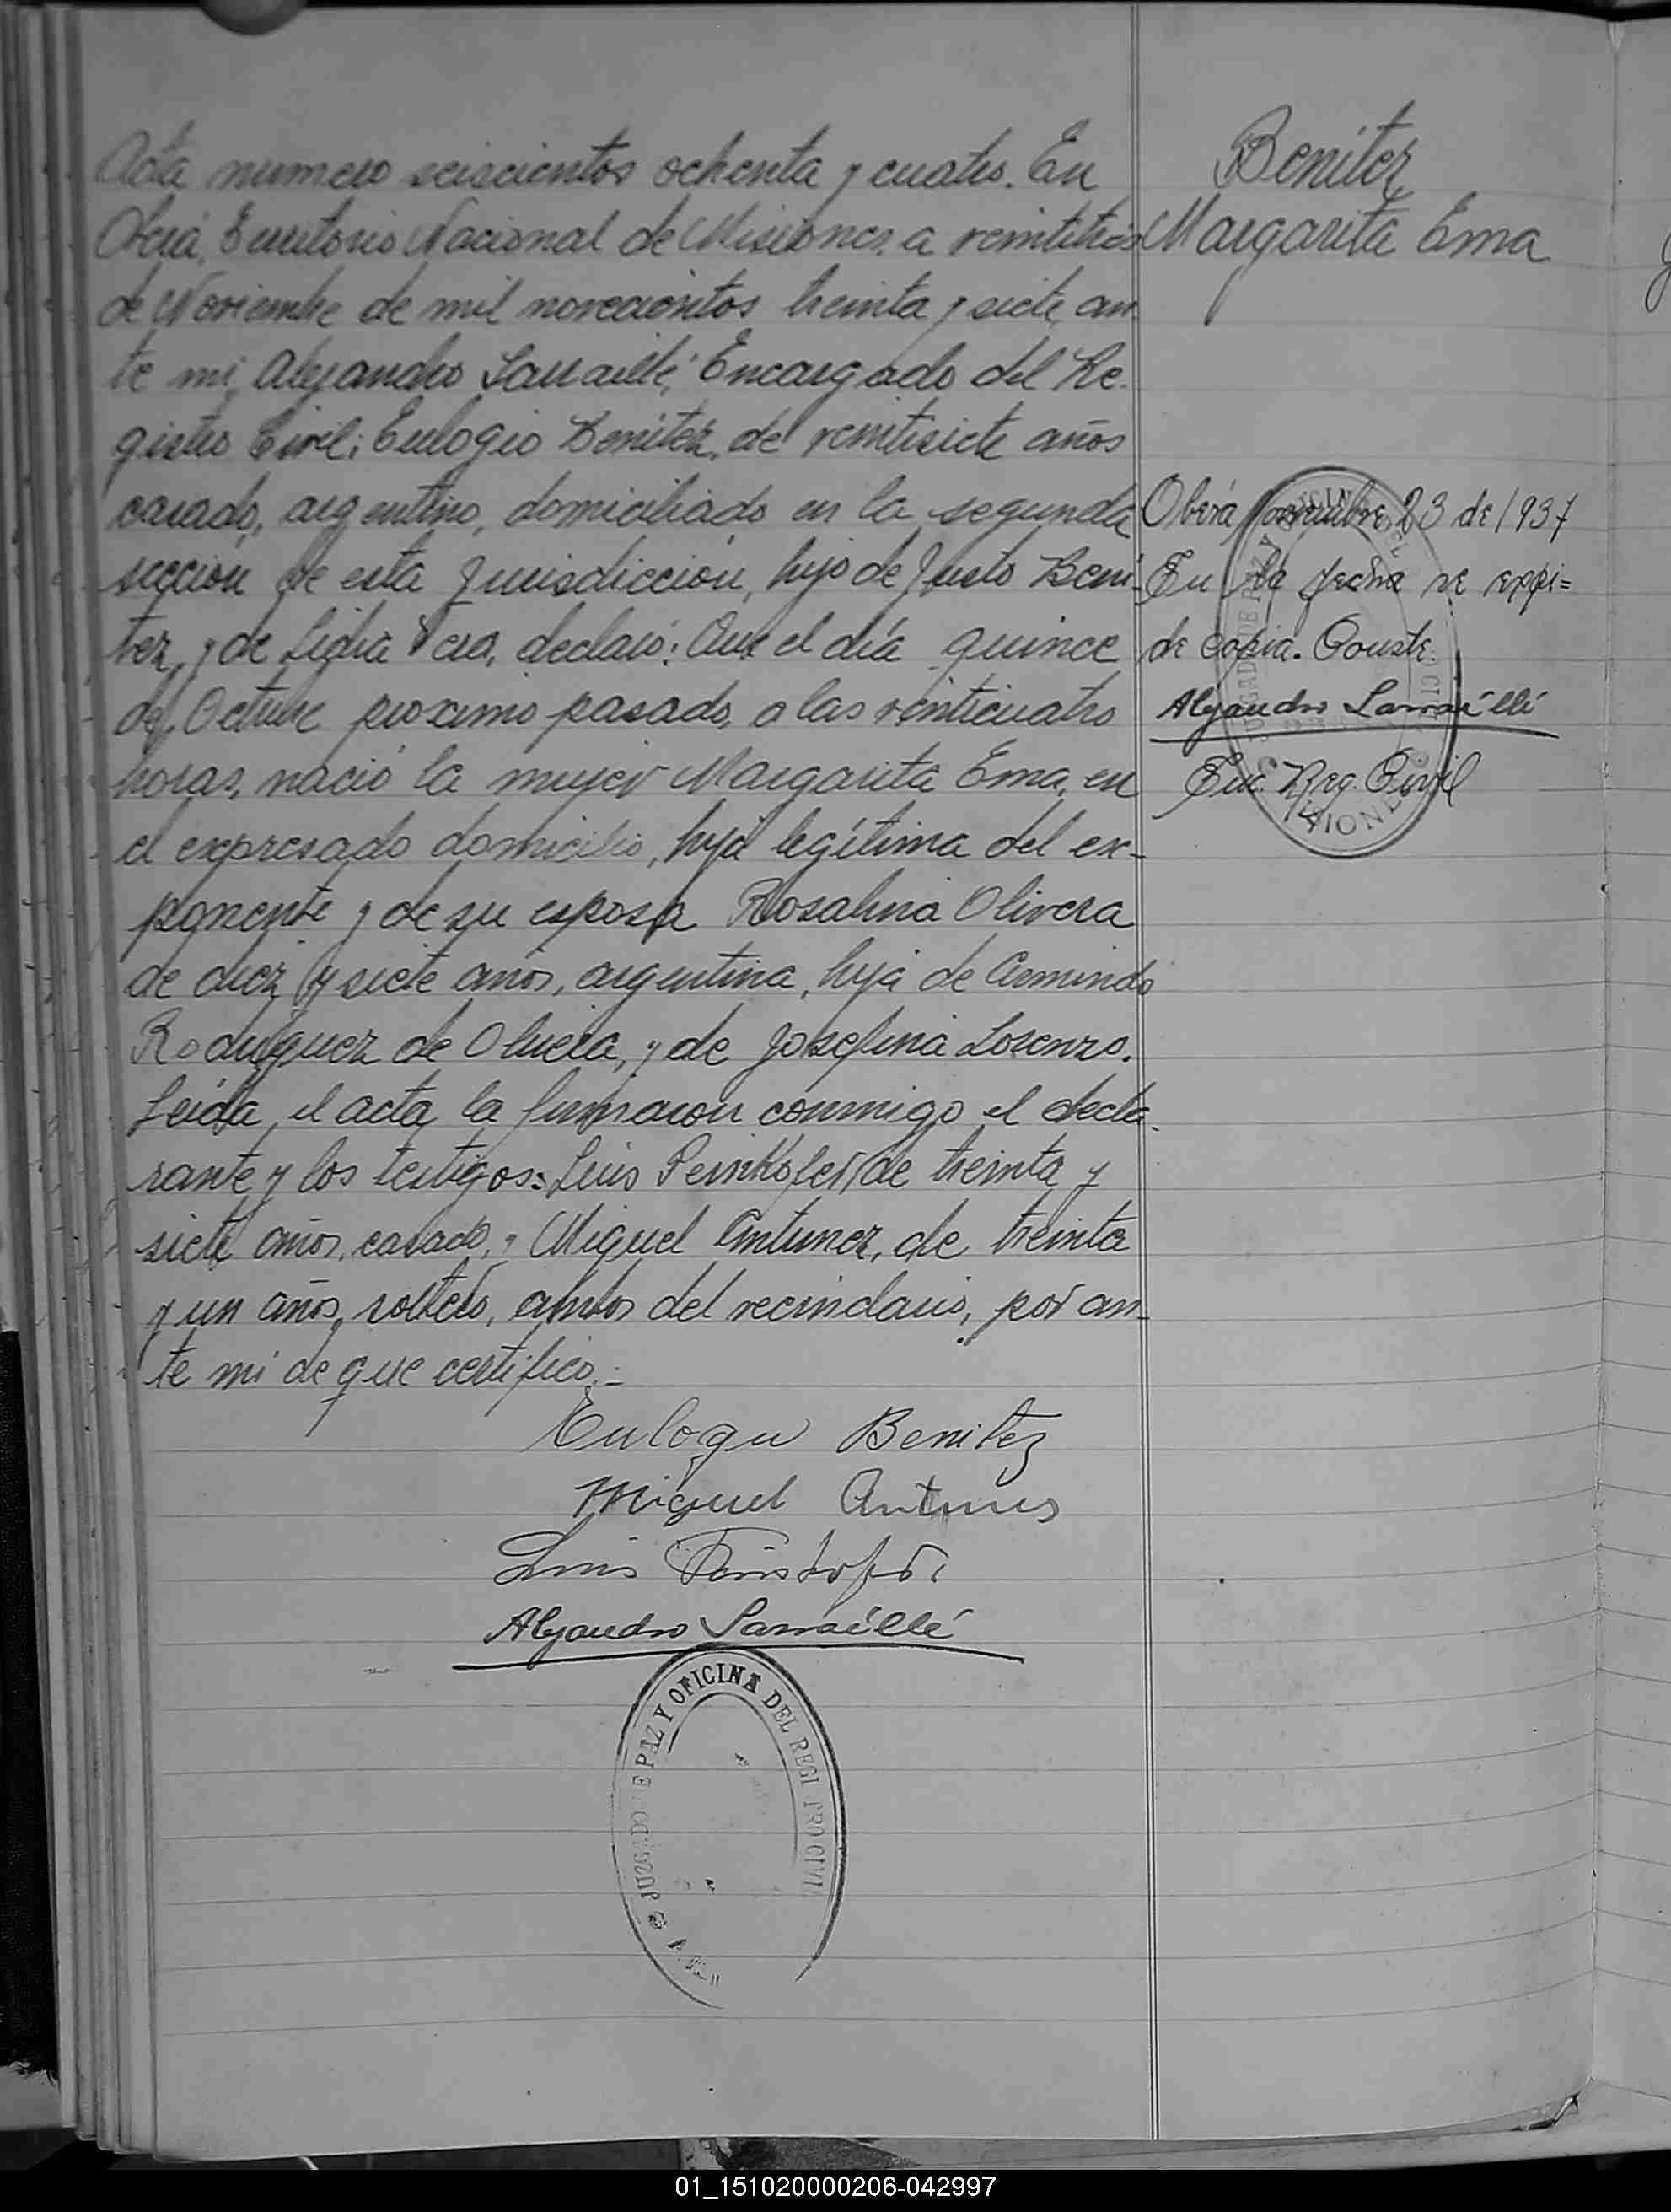 Acta numero seiscientos ochenta y cuatro. En
Oberá, Territorio Nacional de Misiones, a veintitrés
de Noviembre de mil novecientos treinta y siete, an
te mi, Alejandro Sarraillé, Encargado del Re
gistro Civil; Eulogio Benitez, de veintisiete años
casado, argentino, domiciliado en la segunda
sección de esta Jurisdicción, hijo de Justo Beni-
tez, y de Lidia Vera, declaró: Que el día quince
de Octubre proximo pasado, a las veinticuatro
horas, nació la mujer Margarita Ema, en
el expresado domicilio, hija legítima del ex-
ponente y de su esposa Rosalina Olivera
de diez y siete años, argentina, hija de Armindo
Rodriguez de Olivera, y de Josefina Lorenzo.
Leida el acta la firmaron conmigo el decla-
rante y los testigos: Luis Peinkofer, de treinta y
siete años, casado, y Miguel Antunez, de treinta
y un años, soltero, ambos del vecindario, por an-
te mi de que certifico.-
Eulogio Benitez
Miguel Antunes
Luis
Alejandro Sarraillé
JUZGADO DE PAZ Y OFICINA DEL REGISTRO CIVIL
Benitez
Margarita Ema
Oberá Noviembre 23 de 1937
En la fecha se expi=
de copia. Conste.
Alejandro Sarraillé
Enc. Reg. Civil
01_151020000206-042997